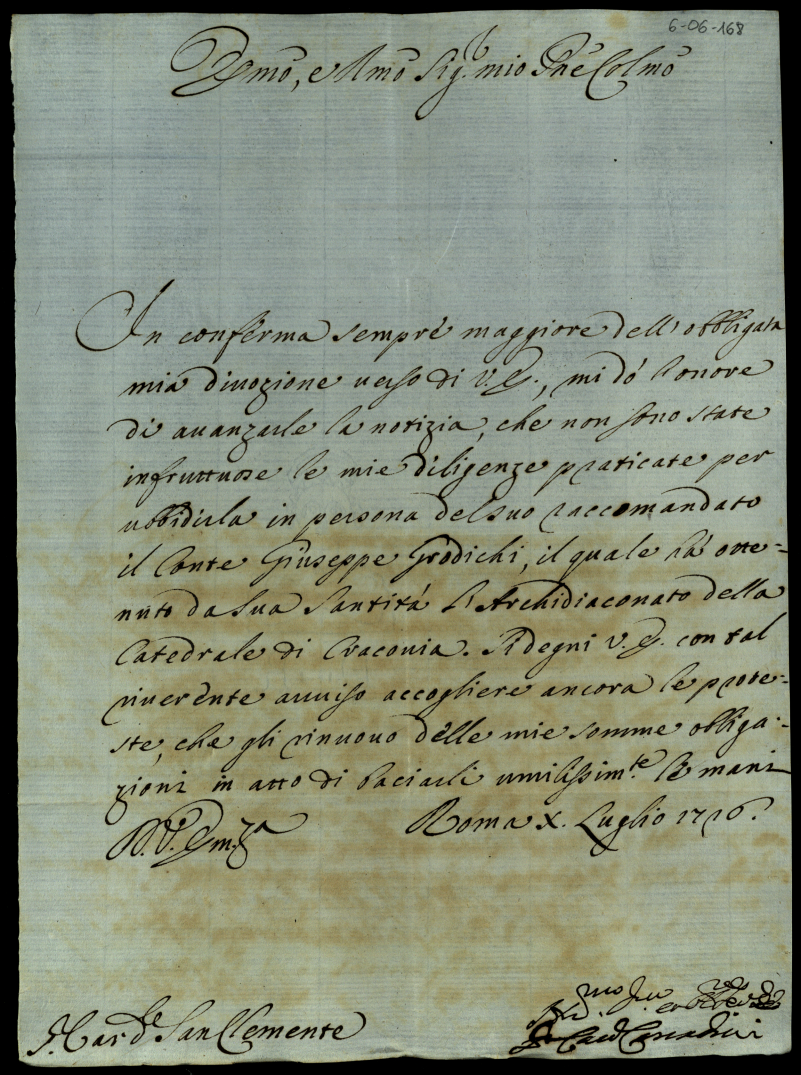 6-06-168
Emō, e Rmō Sig.r mio P̄ne Colmō
In conferma sempre maggiore dell'obbligata
mia divozione verso di V. E., mi dó l'onore
di avanzarle la notizia, che non sono state
infruttuose le mie diligenze praticate per
ubbidirla in persona del suo raccomandato
il Conte Giuseppe Grodichi, il quale há otte=
nuto da Sua Santitá l'Archidiaconato della
Catedrale di Cracovia. Si degni V. E. con tal
riverente avviso accogliere ancora le prote=
ste, che gli rinuovo delle mie somme obliga=
zioni in atto di baciarli umilissim.te le mani
D. V. Em.za Roma X. Luglio 1716.
S. Card.le San Clemente
Card Corradini